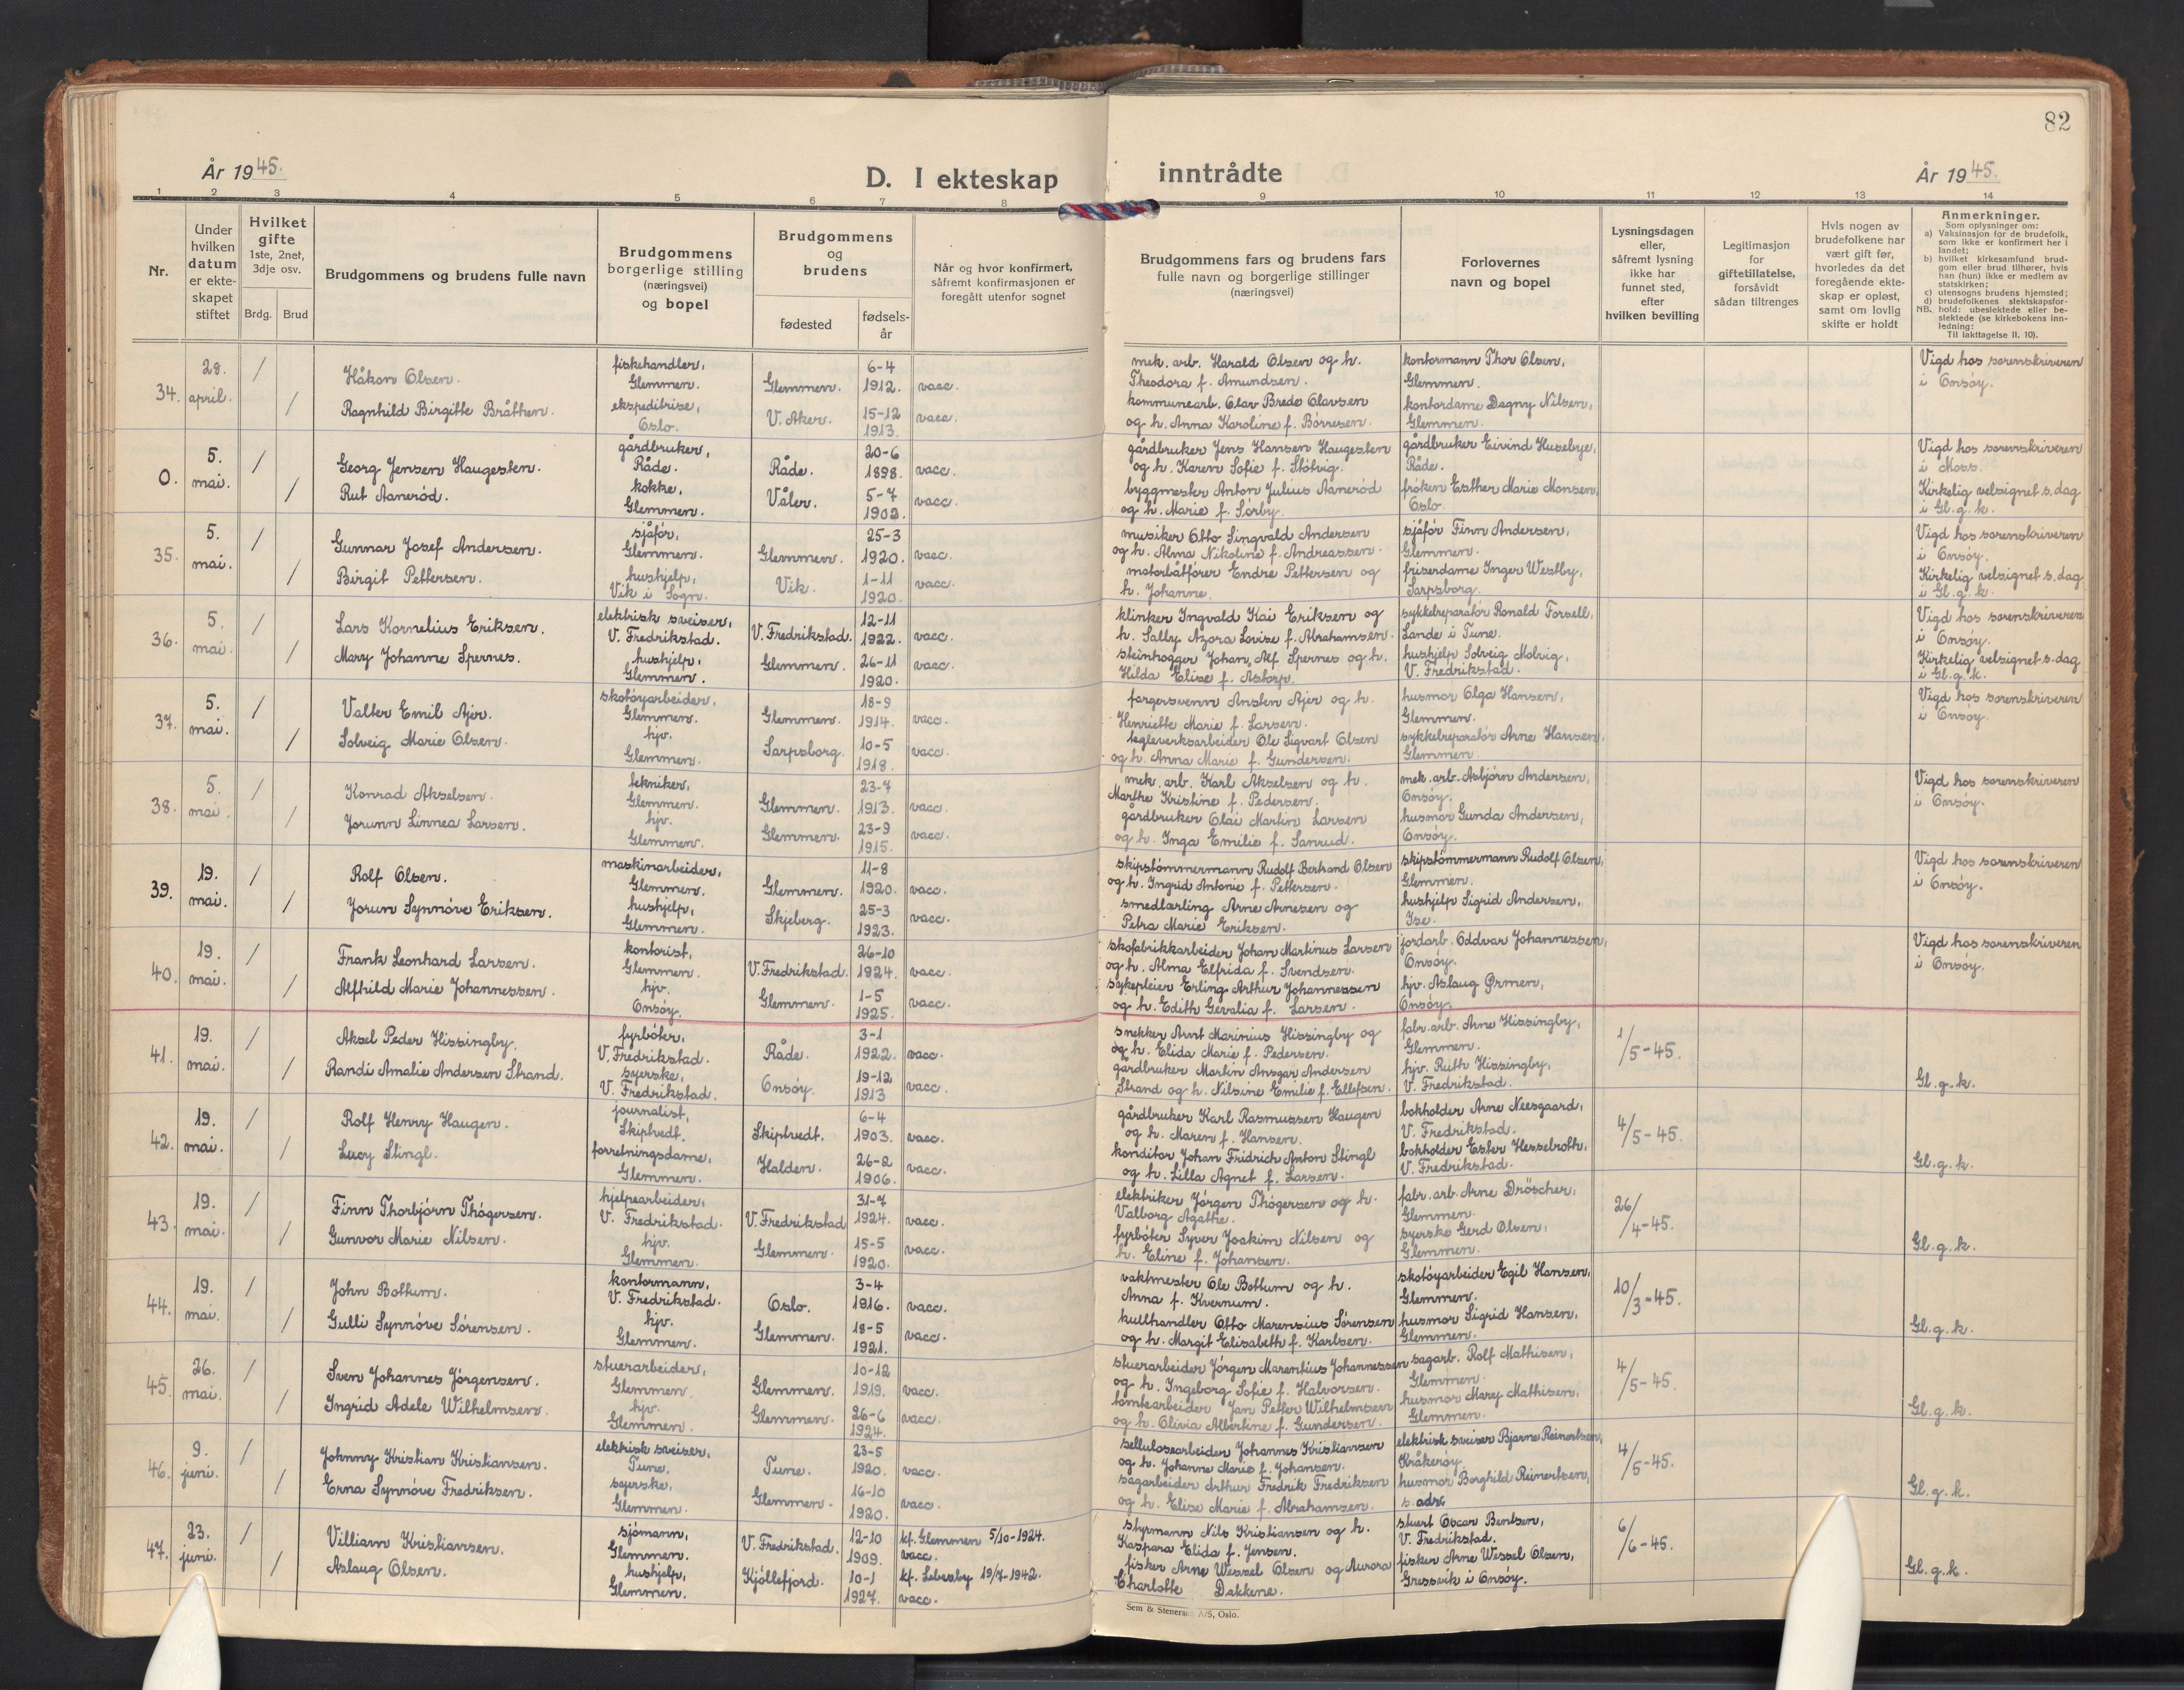 82
År 1945.
D. I ekteskap inntrådte
År 1945.
1 2 3 4 5 6 7 8 9 10 11 12 13 14
Nr.
Under hvilken datum er ekte- skapet stiftet
Hvilket gifte 1ste, 2net, 3dje osv.
Brdg. Brud
Brudgommens og brudens fulle navn
Brudgommens borgerlige stilling (næringsvei) og bopel
Brudgommens og brudens
fødested
fødsels- år
Når og hvor konfirmert, såfremt konfirmasjonen er foregått utenfor sognet
Brudgommens fars og brudens fars fulle navn og borgerlige stillinger (næringsvei)
Forlovernes navn og bopel
Lysningsdagen eller, såfremt lysning ikke har funnet sted, efter hvilken bevilling
Legitimasjon for giftetillatelse, forsåvidt sådan tiltrenges
Hvis nogen av brudefolkene har vært gift før, hvorledes da det foregående ekte- skap er opløst, samt om lovlig skifte er holdt
Anmerkninger.
Som oplysninger om:
a) Vaksinasjon for de brudefolk, som ikke er konfirmert her i landet;
b) hvilket kirkesamfund brud- gom eller brud tilhører, hvis han (hun) ikke er medlem av statskirken;
c) utensogns brudens hjemsted;
d) brudefolkenes slektskapsfor- hold: ubeslektede eller be- slektede (se kirkebokens inn- ledning:
NB. Til iakttagelse II. 10).
34. 28. april. / Håkon Olsen. fiskehandler, Glemmen. Glemmen. 6-4 1912. vacc. mek. arb. Harald Olsen og h. Theodora f. Amundsen. kontormann Thor Olsen, Glemmen. Vigd hos sorenskriveren i Onsøy.
/ Ragnhild Birgitte Bråthen. ekspeditrise, Oslo. V. Aker. 15-12 1913. vacc. kommunearb. Olav Brede Olavsen og h. Anna Karoline f. Börresen. kontordame Dagny Nilsen, Glemmen.
0. 5. mai. / Georg Jensen Haugesten. gårdbruker, Råde. Råde. 20-6 1898. vacc. gårdbruker Jens Hansen Haugesten og h. Karen Sofie f. Slötvig. gårdbruker Eivind Husebye, Råde. Vigd hos sorenskriveren i Moss.
/ Rut Aaneröd. kokke, Glemmen. Våler. 5-7 1902. vacc. byggmester Anton Julius Aaneröd og h. Marie f. Sörby. fröken Esther Marie Monsen, Oslo. Kirkelig velsignet s. dag i Gl. g. k.
35. 5. mai. / Gunnar Josef Andersen. sjåför, Glemmen. Glemmen. 25-3 1920. vacc. musiker Otto Singvald Andersen og h. Alma Nikoline f. Andreassen. sjåför Finn Andersen, Glemmen. Vigd hos sorenskriveren i Onsöy.
/ Birgit Pettersen. hushjelp, Vik i Sogn. Vik. 1-11 1920. vacc. motorbåtförer Endre Pettersen og h. Johanne. friserdame Inger Westby, Sarpsborg. Kirkelig velsignet s. dag i Gl. g. k.
36. 5. mai. / Lars Kornelius Eriksen. elektrisk sveiser, V. Fredrikstad. V. Fredrikstad. 12-11 1922. vacc. klinker Ingvald Kai Eriksen og h. Sally Azora Lovise f. Abrahamsen. sykkelreparatör Ronald Forsell, Lande i Tune. Vigd hos sorenskriveren i Onsöy.
/ Mary Johanne Spernes. hushjelp, Glemmen. Glemmen. 26-11 1920. vacc. steinhogger Johan Alf Spernes og h. Hilda Elise f. Astorp. hushjelp Solveig Molvig, V. Fredrikstad. Kirkelig velsignet s. dag i Gl. g. k.
37. 5. mai. / Valter Emil Ajer. skotöyarbeider, Glemmen. Glemmen. 18-9 1914. vacc. fargersvenn Ansten Ajer og h. Henriette Marie f. Larsen. husmor Olga Hansen, Glemmen. Vigd hos sorenskriveren i Onsöy.
/ Solveig Marie Olsen. hjv. Glemmen. Sarpsborg. 10-5 1918. vacc. teglverksarbeider Ole Sigvart Olsen og h. Anna Marie f. Gundersen. sykkelreparatör Arne Hansen, Glemmen.
38. 5. mai. / Konrad Akselsen. tekniker, Glemmen. Glemmen. 23-7 1913. vacc. mek. arb. Karl Akselsen og h. Marthe Kristine f. Pedersen. mek. arb. Asbjörn Andersen, Onsöy. Vigd hos sorenskriveren i Onsöy.
/ Jorunn Linnea Larsen. hjv. Glemmen. Glemmen. 23-9 1915. vacc. gårdbruker Olai Martin Larsen og h. Inga Emilie f. Sanrud. husmor Gunda Andersen, Onsöy.
39. 19. mai. / Rolf Olsen. maskinarbeider, Glemmen. Glemmen. 11-8 1920. vacc. skipstömmermann Rudolf Bertrand Olsen og h. Ingrid Antonie f. Pettersen. skipstömmermann Rudolf Olsen, Glemmen. Vigd hos sorenskriveren i Onsöy.
/ Jorun Synnöve Eriksen. hushjelp, Glemmen. Skjeberg. 25-3 1923. vacc. smedlærling Arne Arnesen og Petra Marie Eriksen. hushjelp Sigrid Andersen, Ise.
40. 19. mai. / Frank Leonhard Larsen. kontorist, Glemmen. V. Fredrikstad. 26-10 1924. vacc. skofabrikkarbeider Johan Martinus Larsen og h. Alma Elfrida f. Svendsen. jordarb. Oddvar Johannessen, Onsöy. Vigd hos sorenskriveren i Onsöy.
/ Alfhild Marie Johannessen. hjv. Onsöy. Glemmen. 1-5 1925. vacc. sykepleier Erling Arthur Johannessen og h. Edith Gevalia f. Larsen. hjv. Aslaug Ørmen, Onsöy.
41. 19. mai. / Aksel Peder Hissingby. fyrböter, V. Fredrikstad. Råde. 3-1 1922. vacc. snekker Arnt Marinius Hissingby og og h. Elida Marie f. Pedersen. fabr. arb. Arne Hissingby, Glemmen. 1/5-45.
/ Randi Amalie Andersen Strand. syerske, V. Fredrikstad. Onsöy. 19-12 1913 vacc. gårdbruker Martin Ansgar Andersen Strand og h. Nilsine Emilie f. Ellefsen. hjv. Ruth Hissingby, V. Fredrikstad. Gl. g. k.
42. 19. mai. / Rolf Henry Haugen. journalist, Skiptvedt. Skiptvedt. 6-4 1903. vacc. gårdbruker Karl Rasmussen Haugen og h. Maren f. Hansen. bokholder Arne Neesgaard, V. Fredrikstad. 4/5-45.
/ Lucy Stingl. forretningsdame, Glemmen. Halden. 26-2 1906. vacc. konditor Johan Fridrich Anton Stingl og h. Lilla Agnet f. Larsen. bokholder Ester Hesselroth, V. Fredrikstad. Gl. g. k.
43. 19. mai. / Finn Thorbjörn Thögersen. hjelpearbeider, V. Fredrikstad. V. Fredrikstad 31-7 1924. vacc. elektriker Jörgen Thögersen og h. Valborg Agathe. fabr. arb. Arne Dröscher, Glemmen. 26/4-45.
/ Gunvor Marie Nilsen. hjv. Glemmen. Glemmen. 15-5 1920. vacc. fyrböter Syver Joakim Nilsen og h. Eline f. Johansen. syerske Gerd Olsen, Glemmen. Gl. g. k.
44. 19. mai. / John Bottum. kontormann, V. Fredrikstad. Oslo. 3-4 1916. vacc. vaktmester Ole Bottum og h. Anna f. Kvernum. skotöyarbeider Egil Hansen, Glemmen. 10/3-45.
/ Gulli Synnöve Sörensen. hjv. Glemmen. Glemmen. 18-5 1921. vacc. kullhandler Otto Marensius Sörensen og h. Margit Elisabeth f. Karlsen. husmor Sigrid Hansen, Glemmen. Gl. g. k.
45. 26. mai. / Sven Johannes Jörgensen. stuerarbeider, Glemmen. Glemmen. 10-12 1919. vacc. stuerarbeider Jörgen Marentius Johannessen og h. Ingeborg Sofie f. Halvorsen. sagarb. Rolf Mathisen, Glemmen. 4/5-45.
/ Ingrid Adele Wilhelmsen. hjv. Glemmen. Glemmen. 26-6 1924. vacc. tomtearbeider Jan Petter Wilhelmsen og h. Olivia Albertine f. Gundersen. husmor Mary Mathisen, Glemmen. Gl. g. k.
46. 9. juni. / Johnny Kristian Kristiansen. elektrisk sveiser, Tune. Tune. 23-5 1920. vacc. sellulosearbeider Johannes Kristiansen og h. Johanne Marie f. Johansen. elektrisk sveiser Bjarne Reinertsen, Kråkeröy. 4/5-45.
/ Erna Synnöve Fredriksen. syerske, Glemmen. Glemmen. 16-10 1920. vacc. sagarbeider Arthur Fredrik Fredriksen og h. Elise Marie f. Abrahamsen. husmor Borghild Reinertsen, s. adr. Gl. g. k.
47. 23. juni. / Villiam Kristiansen. sjömann, Glemmen. V. Fredrikstad. 12-10 1909. kf. Glemmen 5/10-1924. vacc. styrmann Nils Kristiansen og h. Kaspara Elida f. Jensen. stuert Oscar Bentsen, V. Fredrikstad. 6/6-45.
/ Aslaug Olsen. hushjelp, Glemmen. Kjöllefjord. 10-1 1927. kf. Lebesby 19/7-1942. vacc. fisker Arne Wessel Olsen og Aurora Charlotte Dakkene. fisker Arne Wessel Olsen, Gressvik i Onsöy. Gl. g. k.
Sem & Stenersen A/S, Oslo.